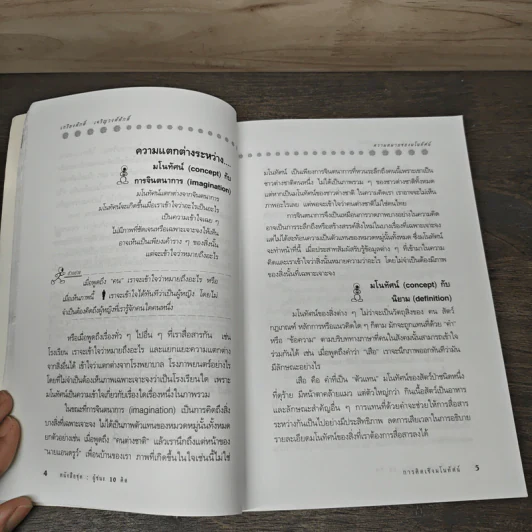 เกรียงศักดิ์ เจริญวงศ์ศักดิ์
ความแตกต่างระหว่าง....
มโนทัศน์ (concept) กับ
การจินตนาการ (imagination)
มโนทัศน์แตกต่างจากจินตนาการ
มโนทัศน์จะเกิดขึ้นเมื่อเราเข้าใจว่าอะไรเป็นอะไร
เป็นความเข้าใจเฉย ๆ
ไม่มีภาพที่ชัดเจนหรือเฉพาะเจาะจงให้เห็น
อาจเห็นเป็นเพียงเค้าร่าง ๆ ของสิ่งนั้น
แต่จะเข้าใจว่าหมายถึงอะไร
ตัวอย่าง
เมื่อพูดถึง "คน" เราจะเข้าใจว่าหมายถึงอะไร หรือ
เมื่อเห็นภาพนี้ เราจะเข้าใจได้ทันทีว่าเป็นผู้หญิง โดยไม่
จำเป็นต้องคิดถึงผู้หญิงที่เรารู้จักคนใดคนหนึ่ง
หรือเมื่อพูดถึงเรื่องทั่ว ๆ ไปอื่น ๆ ที่เราสื่อสารกัน เช่น
โรงเรียน เราจะเข้าใจว่าหมายถึงอะไร และแยกแยะความแตกต่าง
จากสิ่งอื่นได้ เข้าใจว่าแตกต่างจากโรงพยาบาล โรงภาพยนตร์อย่างไร
โดยที่ไม่จำเป็นต้องเห็นภาพเฉพาะเจาะจงว่าเป็นโรงเรียนใด เพราะ
มโนทัศน์เป็นความเข้าใจเกี่ยวกับเรื่องใดเรื่องหนึ่งในภาพรวม
ในขณะที่การจินตนาการ (imagination) เป็นการคิดถึงสิ่ง
บางสิ่งที่เฉพาะเจาะจง ไม่ได้เป็นภาพตัวแทนของหมวดหมู่นั้นทั้งหมด
ยกตัวอย่างเช่น เมื่อพูดถึง "คนต่างชาติ" แล้วเรานึกถึงแต่หน้าของ
"นายแอนดรูว์" เพื่อนบ้านของเรา ภาพที่เกิดขึ้นในใจเช่นนี้ไม่ใช่
4 หนังสือชุด : ผู้ชนะ 10 คิด
ความหมายของมโนทัศน์
มโนทัศน์ เป็นเพียงการจินตนาการที่หวนระลึกถึงคนนี้เพราะเขาเป็น
ชาวต่างชาติคนหนึ่ง ไม่ได้เป็นภาพรวม ๆ ของชาวต่างชาติทั้งหมด
แต่หากเป็นมโนทัศน์ของชาวต่างชาติ ในความคิดเรา เราอาจจะไม่เห็น
ภาพอะไรเลย แต่พอจะเข้าใจว่าคนต่างชาติไม่ใช่คนไทย
การจินตนาการจึงเป็นเหมือนการวาดภาพบางอย่างในความคิด
อาจเป็นการระลึกถึงหรือสร้างสรรค์สิ่งใหม่ในบางเรื่องที่เฉพาะเจาะจง
แต่ไม่ได้สะท้อนความเป็นตัวแทนของหมวดหมู่นั้นทั้งหมด ซึ่งมโนทัศน์
จะทำหน้าที่นี้ เมื่อประสาทสัมผัสรับรู้ข้อมูลต่าง ๆ ที่เข้ามาในความ
คิดและเราเข้าใจว่าสิ่งนั้นหมายความว่าอะไร โดยไม่จำเป็นต้องมีภาพ
ของสิ่งนั้นที่เฉพาะเจาะจง
มโนทัศน์ (concept) กับ
นิยาม (definition)
มโนทัศน์ของสิ่งต่าง ๆ ไม่ว่าจะเป็นวัตถุสิ่งของ คน สัตว์
กฎเกณฑ์ หลักการหรือแนวคิดใด ๆ ก็ตาม มักจะถูกแทนที่ด้วย "คำ"
หรือ "ข้อความ" ตามบริบททางภาษาที่คนในสังคมนั้นสามารถเข้าใจ
ร่วมกันได้ เช่น เมื่อพูดถึงคำว่า "เสือ" เราจะนึกภาพออกทันทีว่ามัน
มีลักษณะอย่างไร
เสือ คือ คำที่เป็น "ตัวแทน" มโนทัศน์ของสัตว์ป่าชนิดหนึ่ง
ที่ดุร้าย มีหน้าตาคล้ายแมว แต่ตัวใหญ่กว่า กินเนื้อสัตว์เป็นอาหาร
และลักษณะสำคัญอื่น ๆ การแทนที่ด้วยคำจะช่วยให้การสื่อสาร
ระหว่างกันเป็นไปอย่างมีประสิทธิภาพ ลดการเสียเวลาในการอธิบาย
รายละเอียดมโนทัศน์ของสิ่งที่เราต้องการสื่อสารลงได้
การคิดเชิงมโนทัศน์ 5